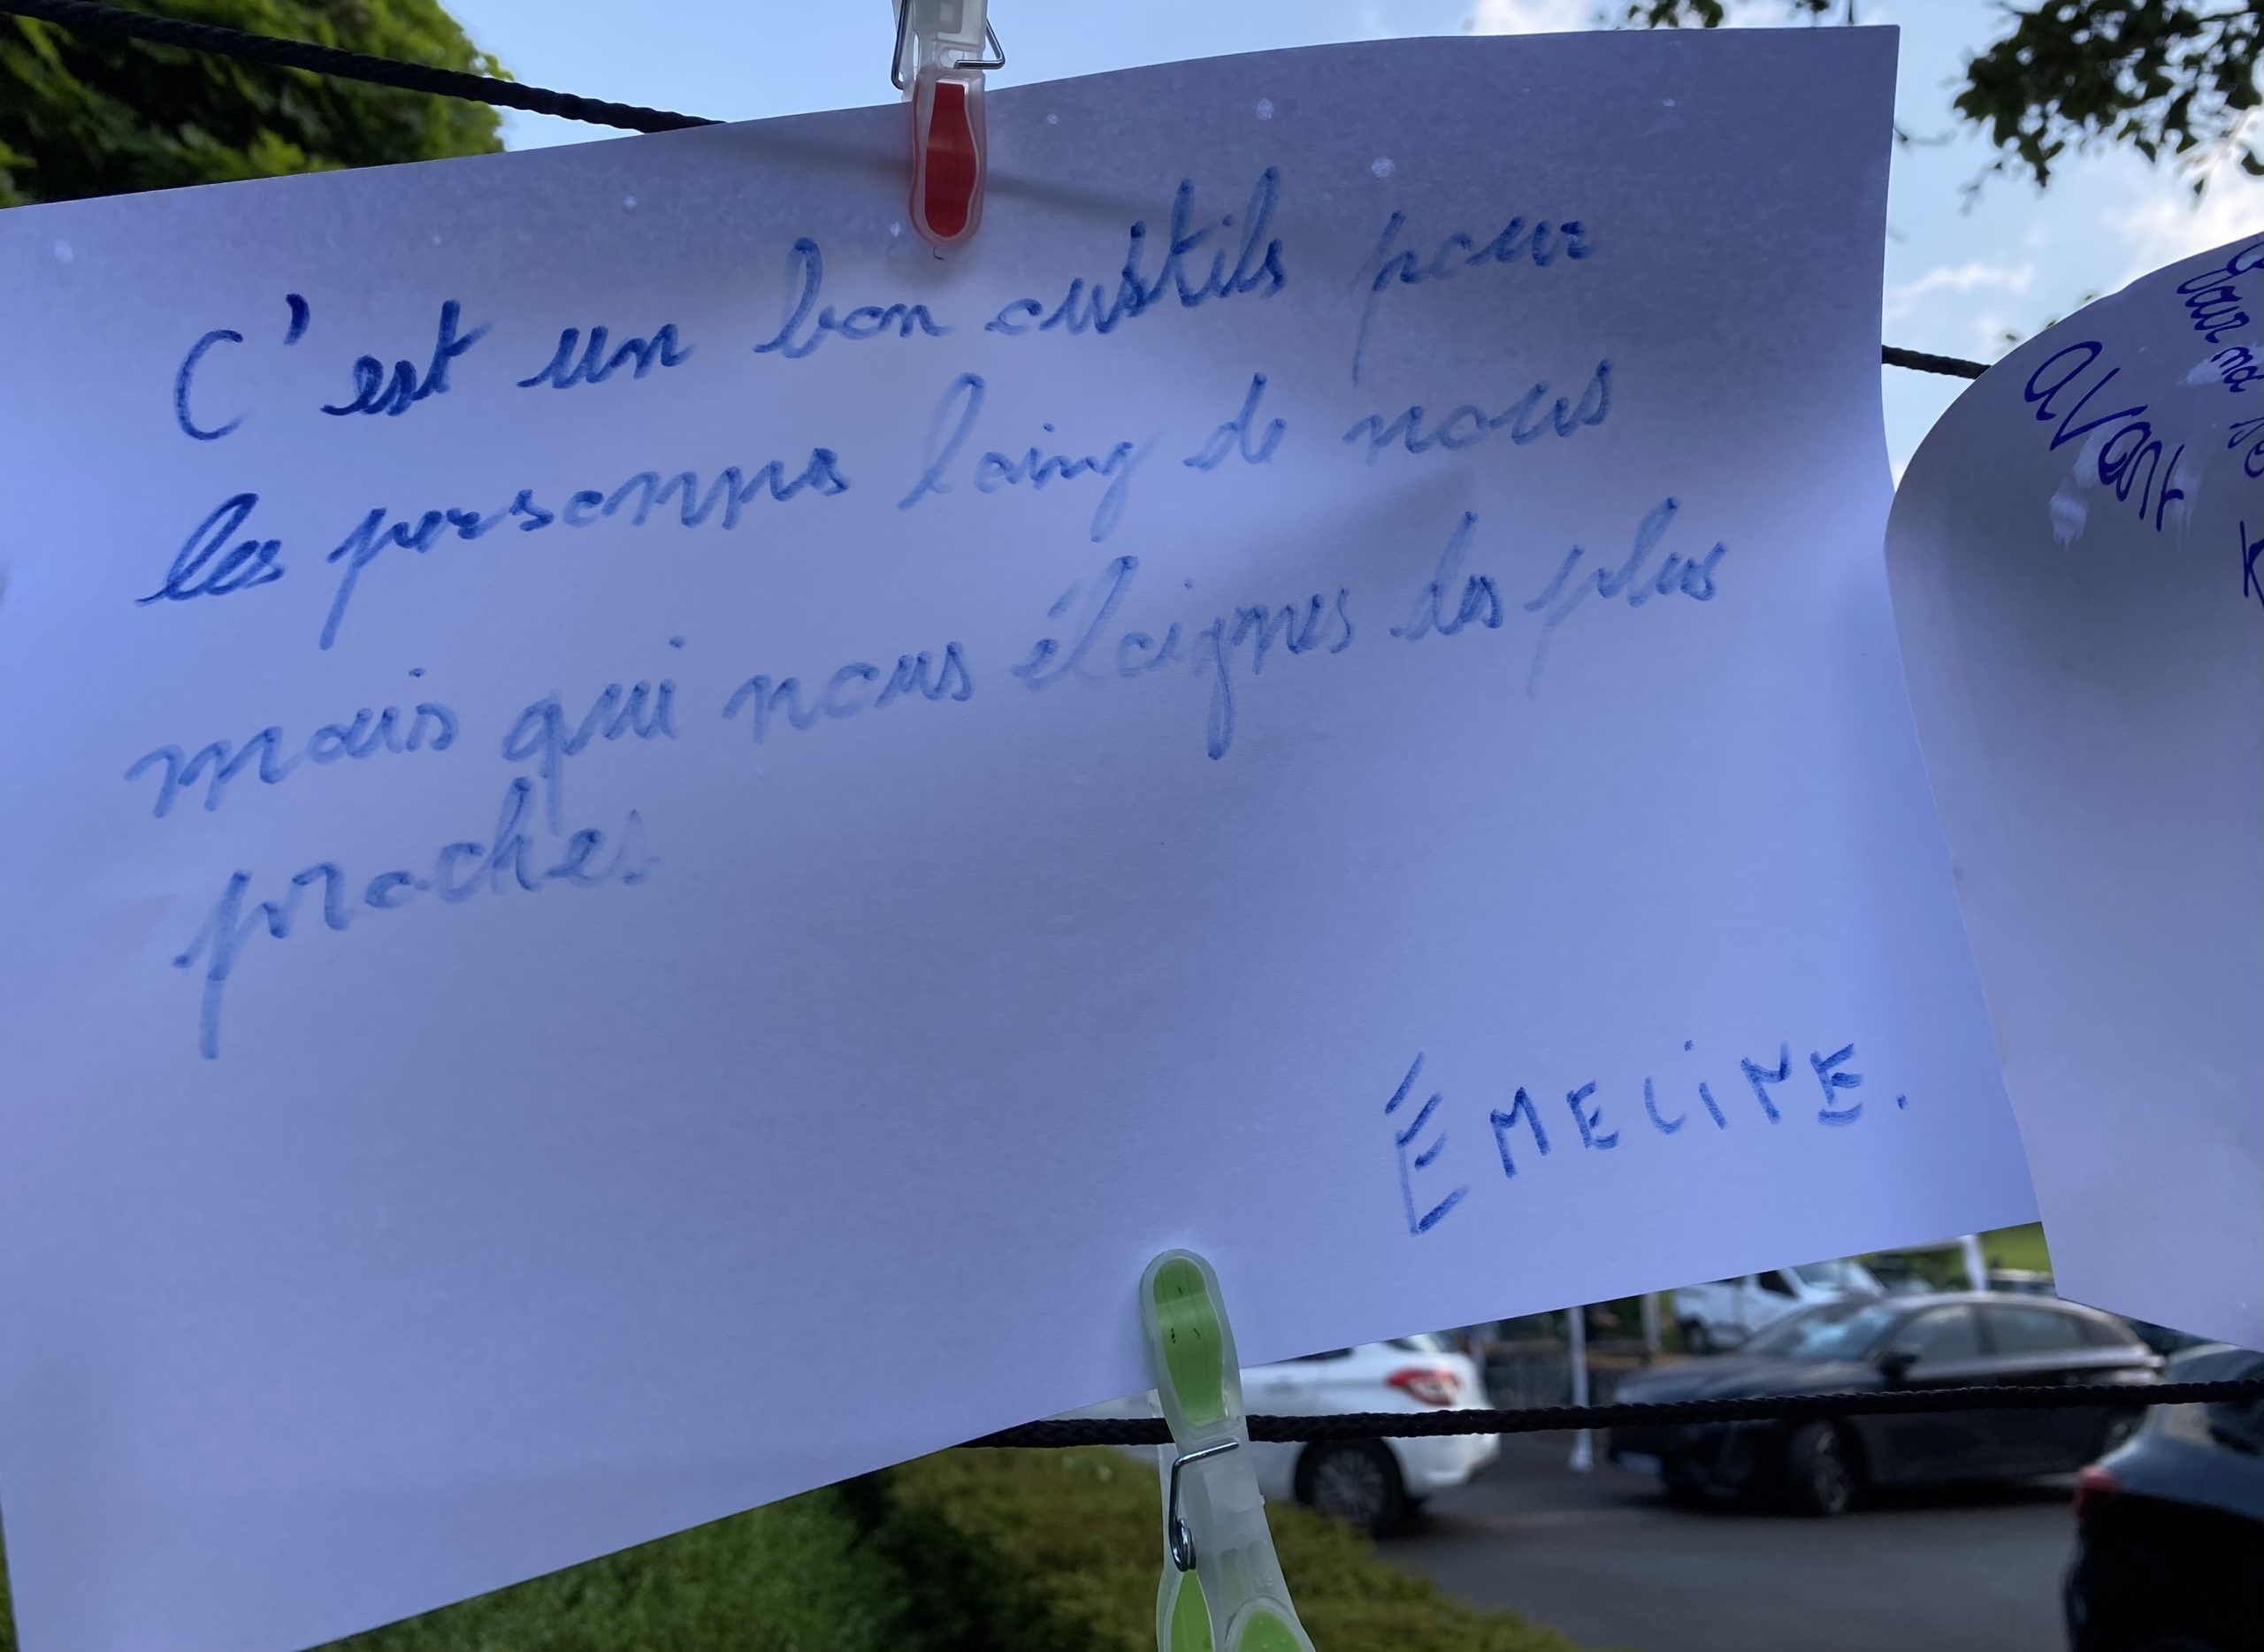 C'est un bon oustils pour
les personnes loing de nous
mais qui nous éloignes des plus
proches
ÉMELiNE.
avant